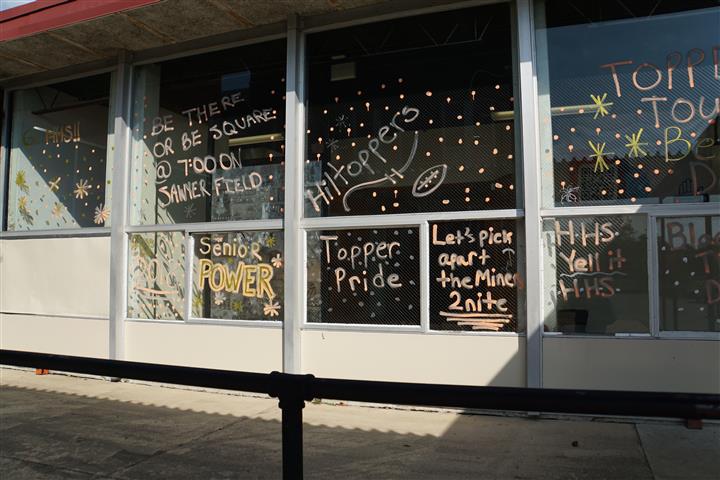 HHS!!
BE THERE
OR BE SQUARE
@ 7:00 ON
SAWYER FIELD
Hilltoppers
SENIOR
POWER
TOPPER
Pride
Let's pick
apart
the Miners
2nite
HHS
Yell it
HHS